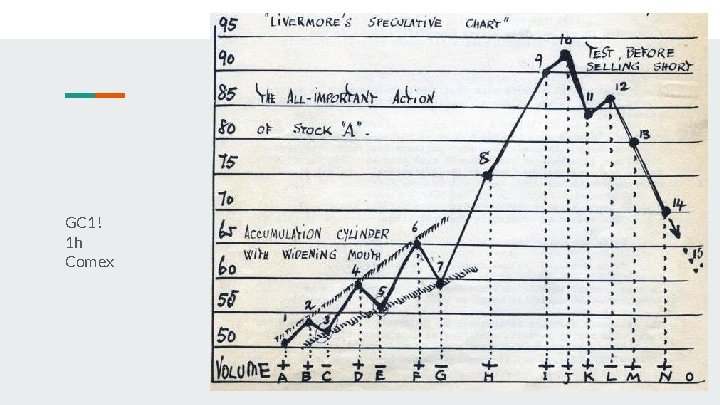 GC1!
1h
Comex
"LIVERMORE'S SPECULATIVE CHART"
95
90
85
80
75
70
65
60
55
50
TEST, BEFORE
SELLING SHORT
THE ALL-IMPORTANT ACTION
OF STOCK "A".
ACCUMULATION CYLINDER
WITH WIDENING MOUTH
1
2
3
4
5
6
7
8
9
10
11
12
13
14
15
VOLUME + + - + - + - + + + + - + +
A B C D E F G H I J K L M N O